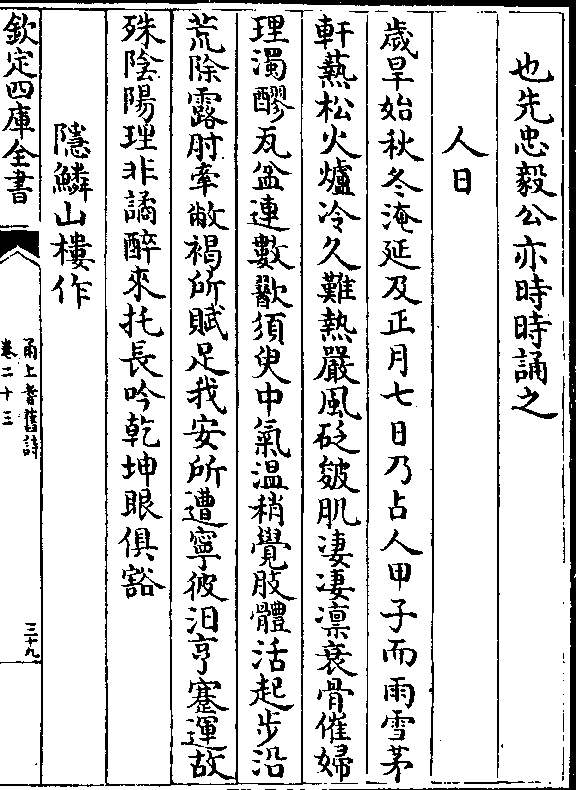 也先忠毅公亦時時誦之
人日
歲旱始秋冬淹延及正月七日乃占人甲子而雨雪茅
軒爇松火爐冷久難熱嚴風砭皴肌淒淒凜衰骨催婦
理濁醪瓦盆連數歠須臾中氣溫稍覺肢體活起步沿
荒除露肘牽敝褐所賦足我安所遭寧彼汨亨蹇運故
殊陰陽理非譎醉來托長吟乾坤眼俱豁
隱鱗山樓作
欽定四庫全書
甬上耆舊詩
卷二十三
三十九